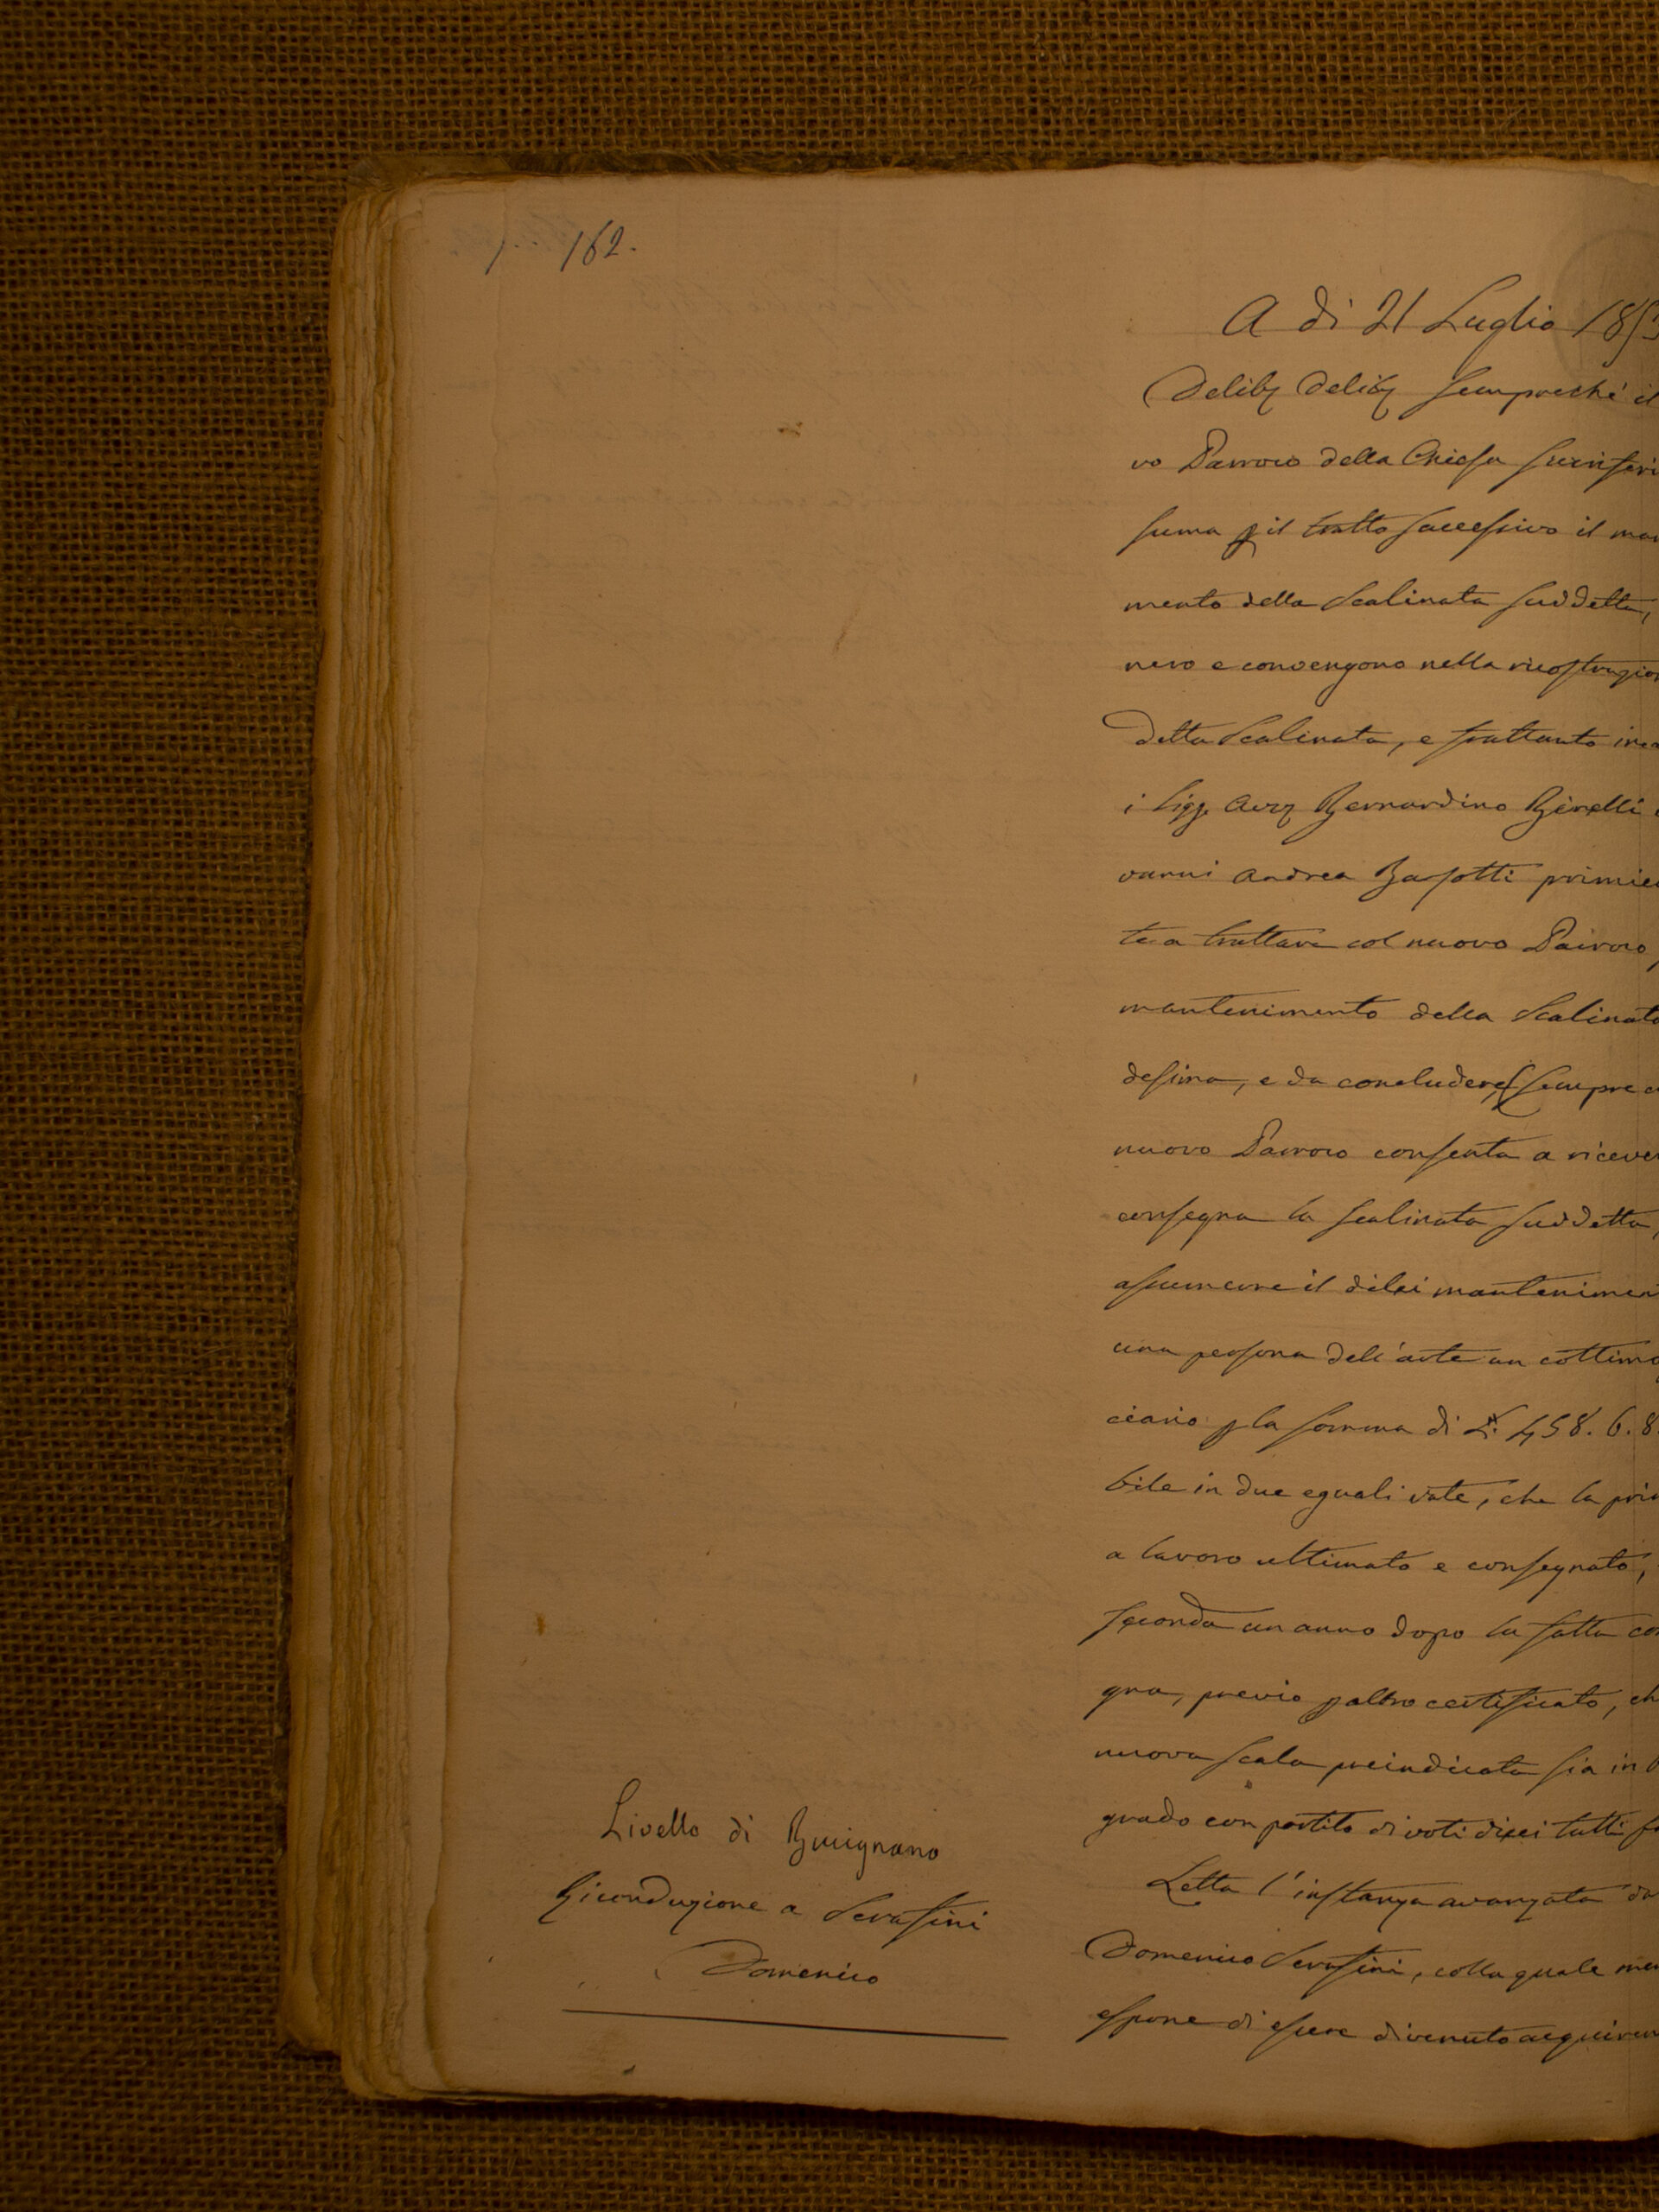 162.
A dì 21 Luglio 1853
Delib Delib sempreché il
vo Parroco della Chiesa
suma p il tratto successivo il man
mento della Scalinata suddetta,
nero e convengono nella ricostruzion
detta Scalinata, e frattanto inca
i Sigg. Avv Bernardino Binelli
vanni Andrea Basotti primie
te a trattare col nuovo Parroco,
mantenimento della Scalinata
desima, e da concludere, (sempre
nuovo Parroco consenta a ricever
consegna la scalinata suddetta,
assumere il dilei mantenimen
una persona dell'arte un cottimo
ciario p la somma di £. 458. 6. 8.
bile in due eguali rate, che la prim
a lavoro ultimato e consegnato,
seconda un anno dopo la fatta con
gna, previo p altro certificato, ch
nuova scala preindicata sia in
grado con partito di voti dieci tutti fa
Livello di Brucignano
Riconduzione a Serafini
Domenico
Letta l'instanza avanzata da
Domenico Serafini, colla quale men
espone di essere divenuto acquiren